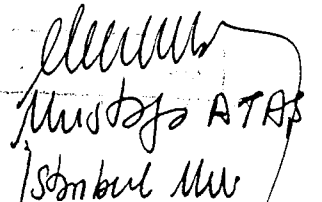 Mustafa ATAŞ
İstanbul Mv.